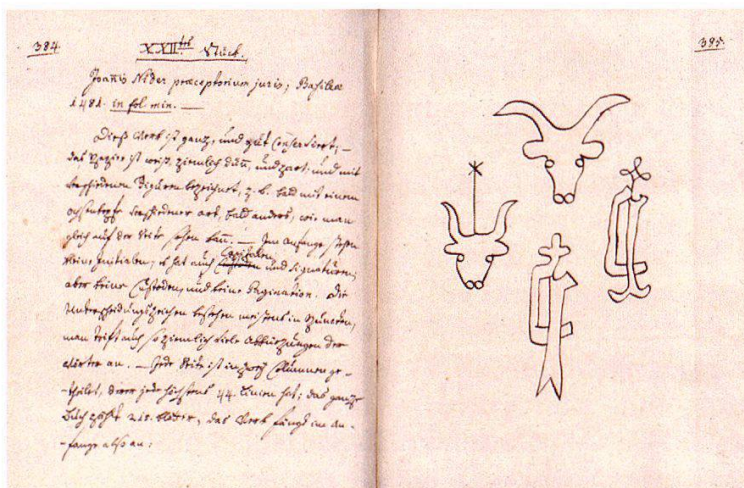 384.
XXII<sup>tes</sup> Stück.
Joañis Nider præceptorium juris; Basileæ
1481. in fol min. —
Dieß Werk ist ganz, und gut conserviert; —
das Papier ist weiß, ziemlich dün, und zart, und mit
verschiedenen Figuren bezeichnet, z. b. bald mit einem
ochsenkopfe verschiedener art, bald anders, wie man
gleich auf der Seite sehen kañ. — Im Anfange stehen
kleine Initialen; es hat auch Capitalen, und Signaturen,
aber keine Custoden, und keine Pagination. Die
Unterscheidungszeichen bestehen meistens in Puncten,
man trift auch so ziemlich viele Abkürzungen der
Wörter an. — Jede Seite ist in zwey Columnen ge-
-theilet, derer jede höchstens 44. Linien hat; das ganze
Buch zählt 215. Blätter, das Werk fängt im An-
-fange also an:
385.